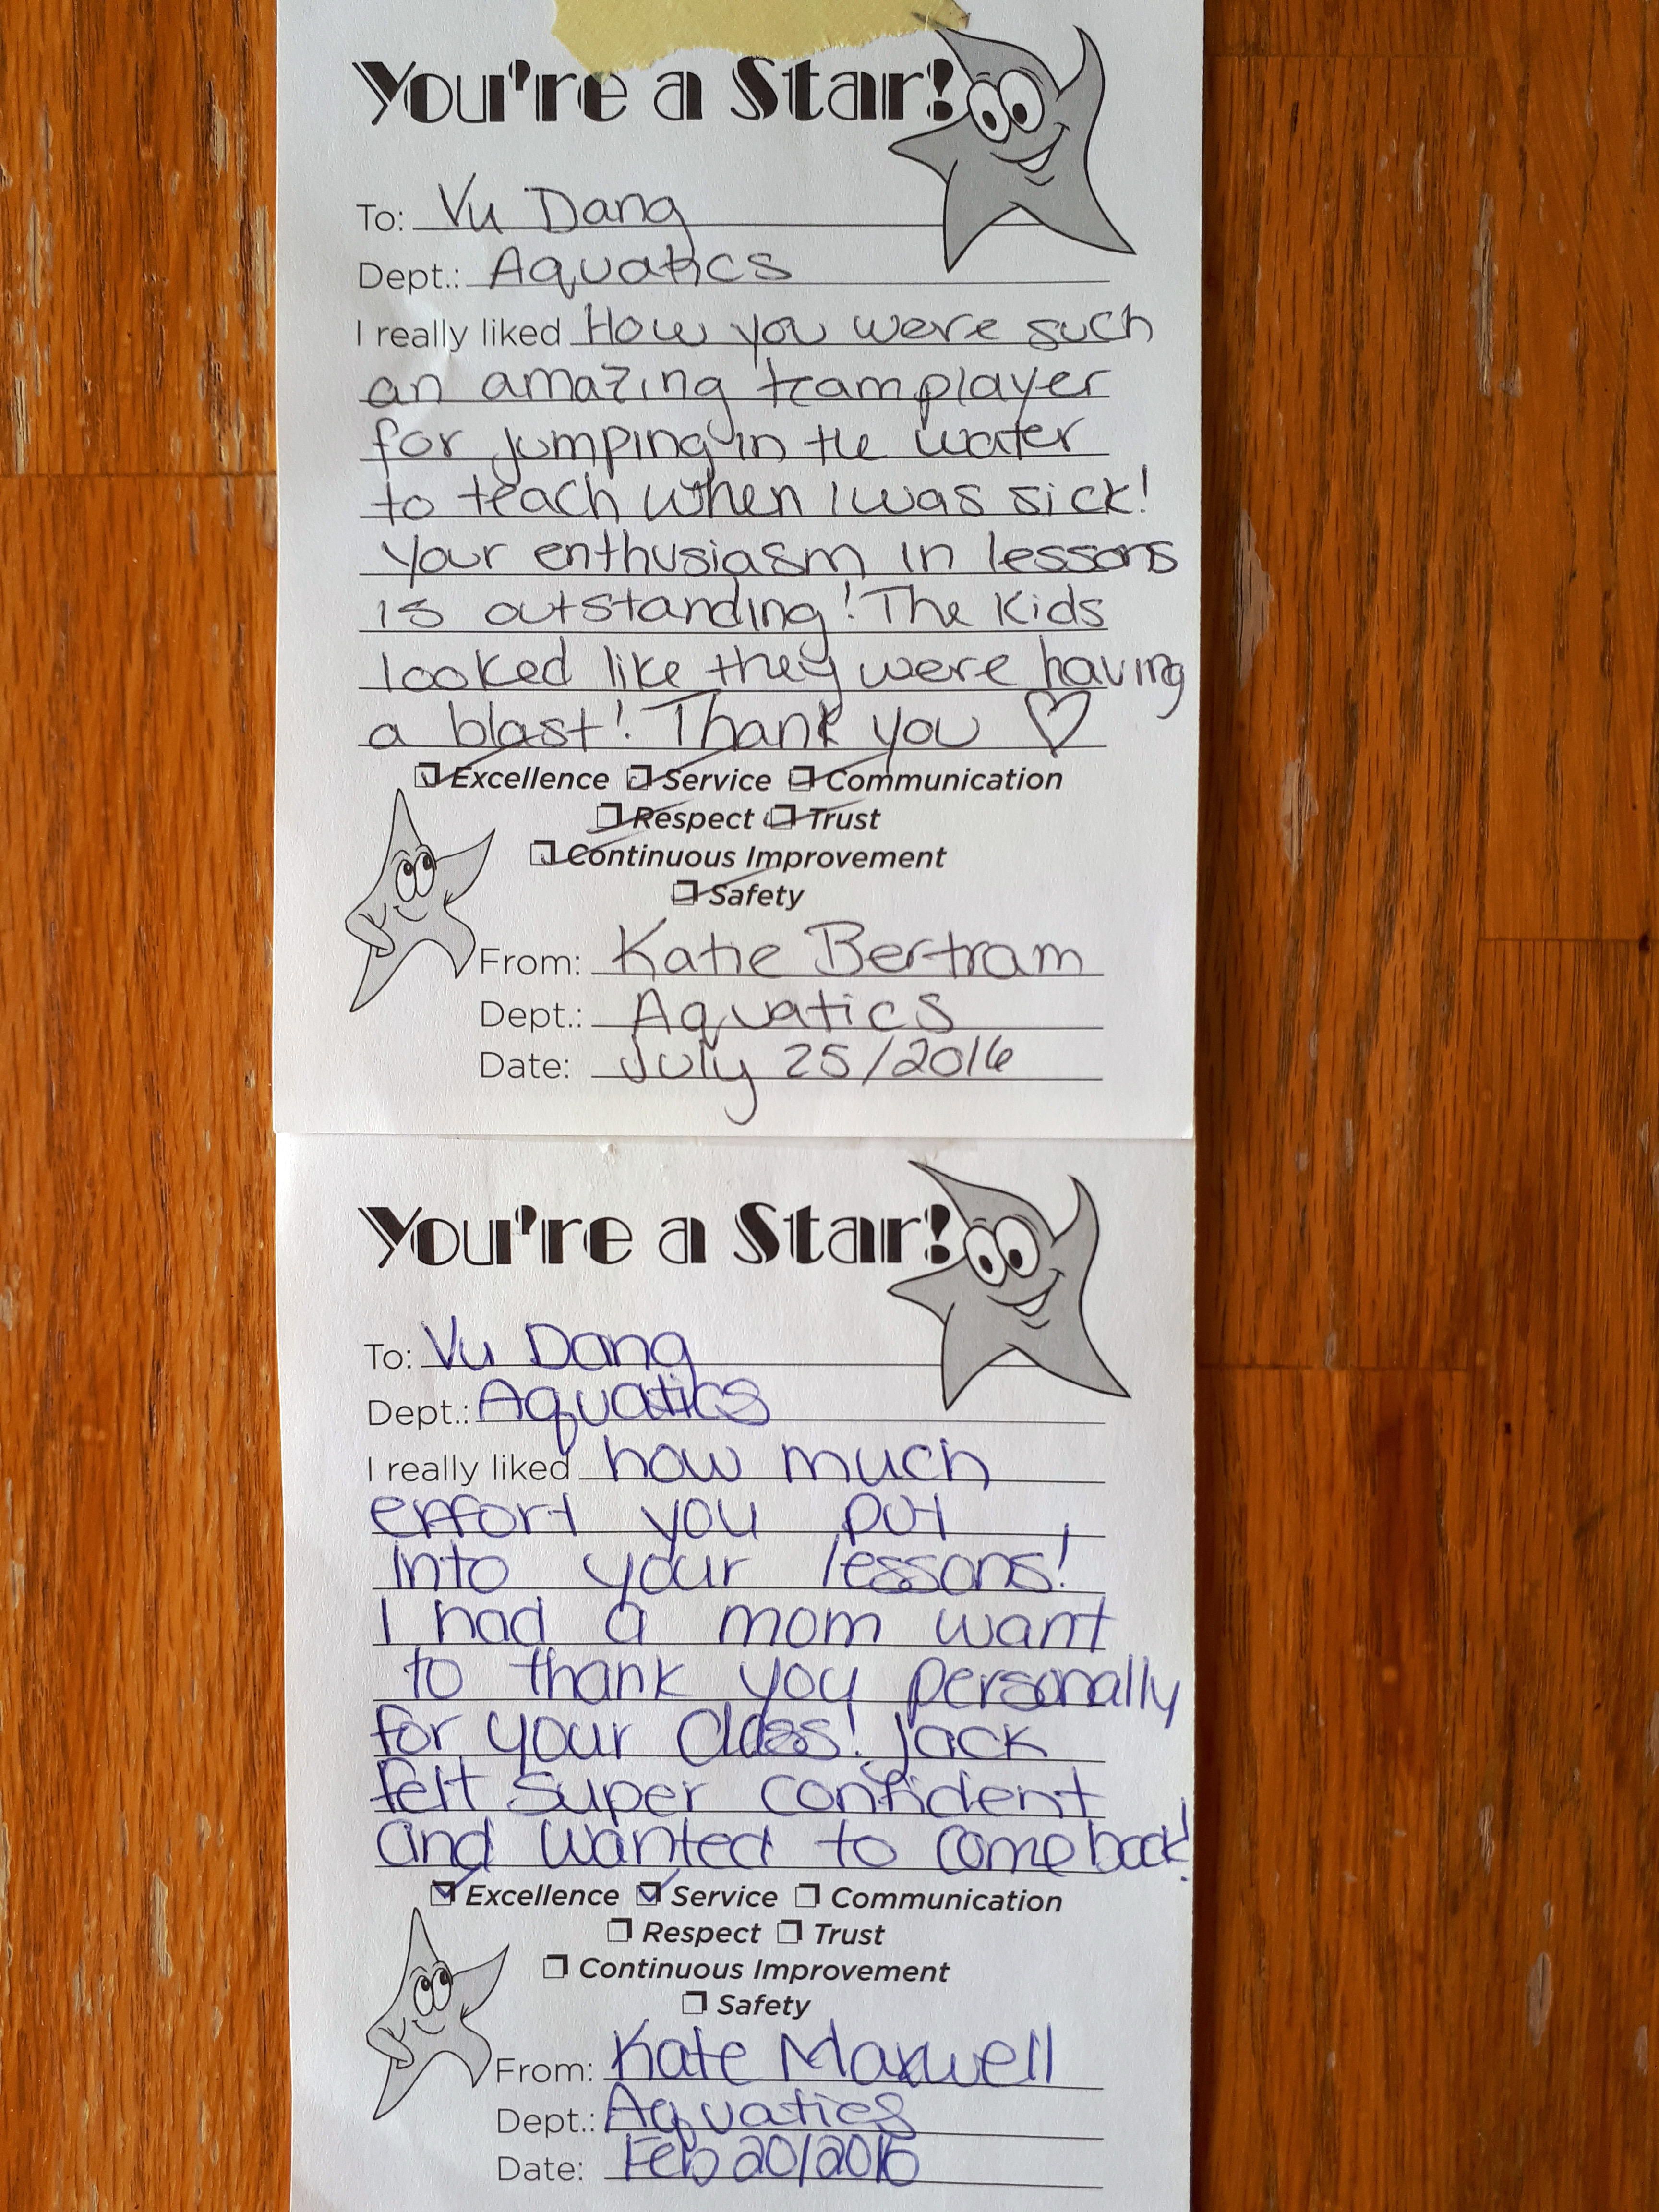 You're a Star!
To: Vu Dang
Dept.: Aquatics
I really liked How you were such
an amazing team player
for jumping in the water
to teach when I was sick!
Your enthusiasm in lessons
is outstanding! The Kids
looked like they were having
a blast! Thank you ♡
Excellence Service Communication
Respect Trust
Continuous Improvement
Safety
From: Katie Bertram
Dept.: Aquatics
Date: July 25/2016
You're a Star!
To: Vu Dang
Dept.: Aquatics
I really liked how much
effort you put
into your lessons!
I had a mom want
to thank you personally
for your class! Jack
felt super confident
and wanted to come back!
Excellence Service Communication
Respect Trust
Continuous Improvement
Safety
From: Kate Maxwell
Dept.: Aquatics
Date: Feb 20/2016